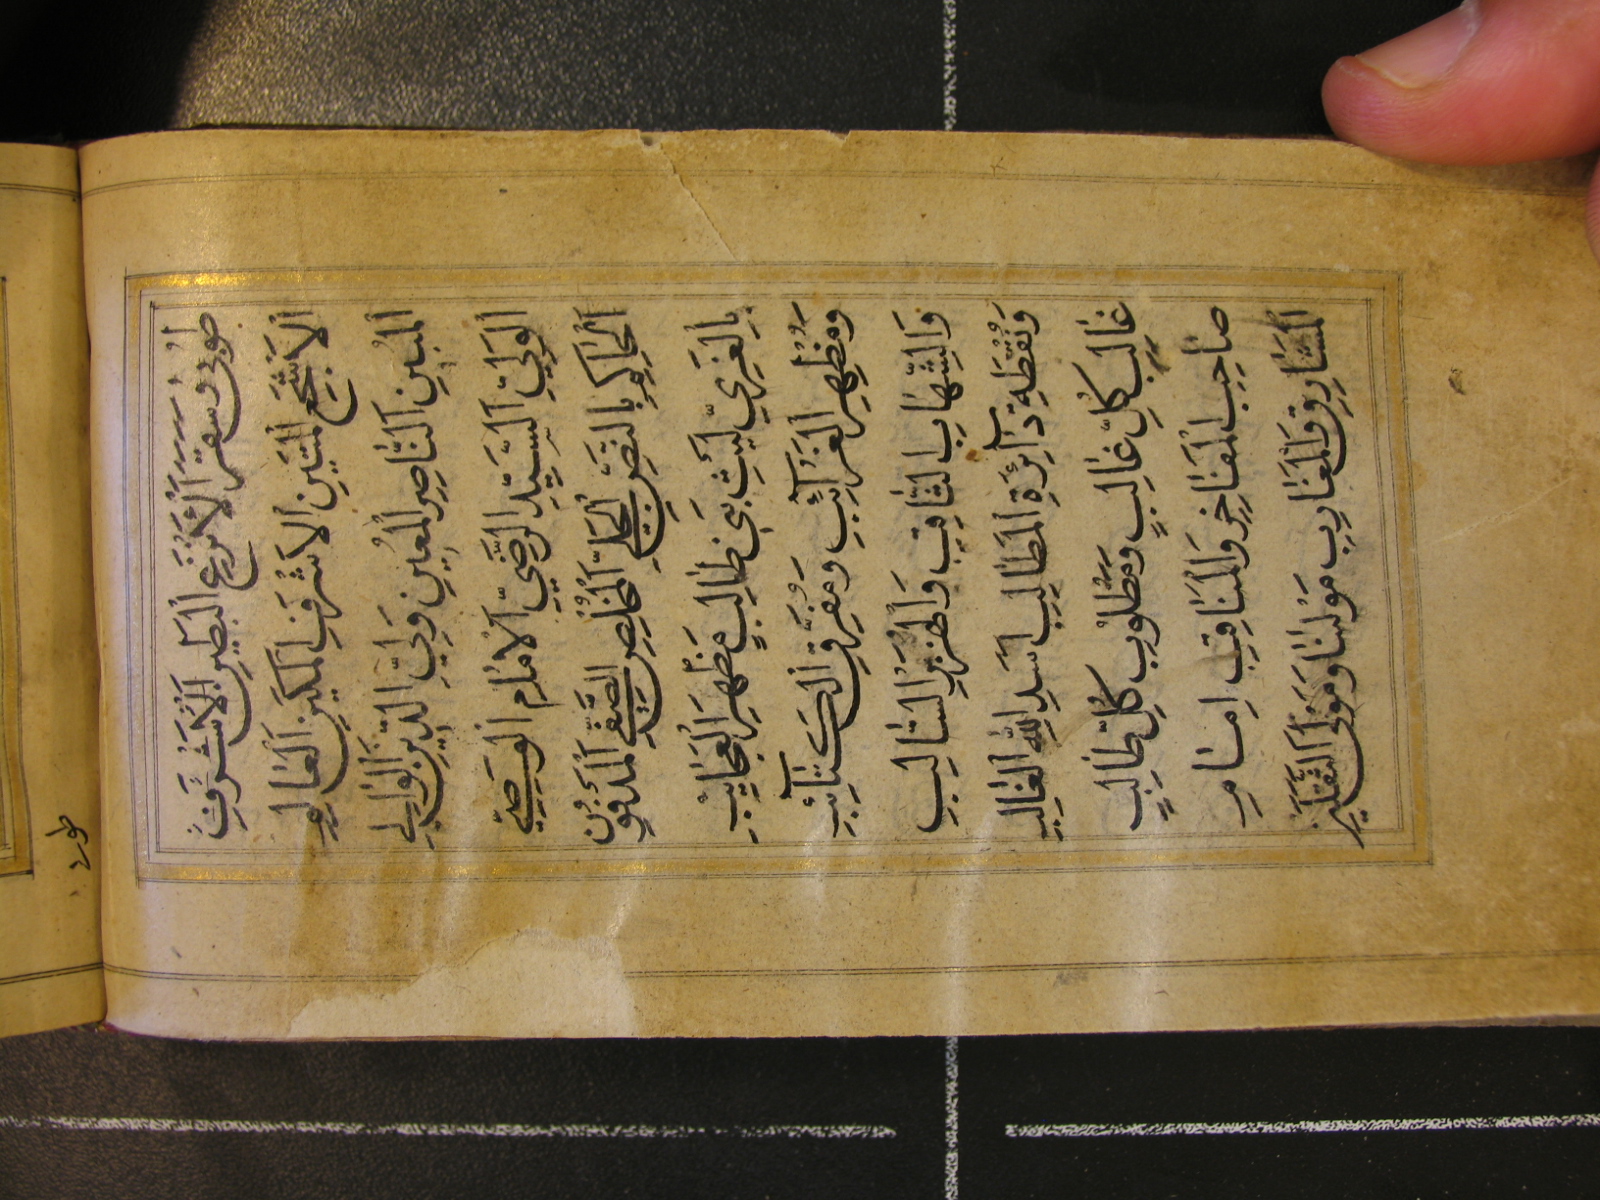 طُوبٰى وَسَقَرَ الْاَنْزَعِ الْبَطِينِ الْاَشْرَفِ
الْاَشْجَعِ الْمَتِينِ الْاَشْرَفِ الْمَكِينِ الْعَالِمِ
الْمُبِينِ النَّاصِرِ الْمُعِينِ وَلِيِّ الدِّينِ الْوَالِي
الْوَلِيِّ السَّيِّدِ الرَّضِيِّ الْاِمَامِ الْوَصِيِّ
الْحَاكِمِ بِالنَّصِّ الْجَلِيِّ الْمُخْلِصِ الصَّفِيِّ الْمَدْفُونِ
بِالْغَرِيِّ لَيْثِ بَنِي غَالِبٍ مَظْهَرِ الْعَجَائِبِ
وَمُظْهِرِ الْغَرَآئِبِ وَمُفَرِّقِ الْكَتَآئِبِ
وَالشِّهَابِ الثَّاقِبِ وَالْهِزَبْرِ السَّالِبِ
وَنُقْطَةِ دَآئِرَةِ الْمَطَالِبِ اَسَدِ اللهِ الْغَالِبِ
غَالِبِ كُلِّ غَالِبٍ وَمَطْلُوبِ كُلِّ طَالِبٍ
صَاحِبِ الْمَفَاخِرِ وَالْمَنَاقِبِ اِمَامِ
الْمَشَارِقِ وَالْمَغَارِبِ مَوْلٰنَا وَمَوْلَى الثَّقَلَيْنِ